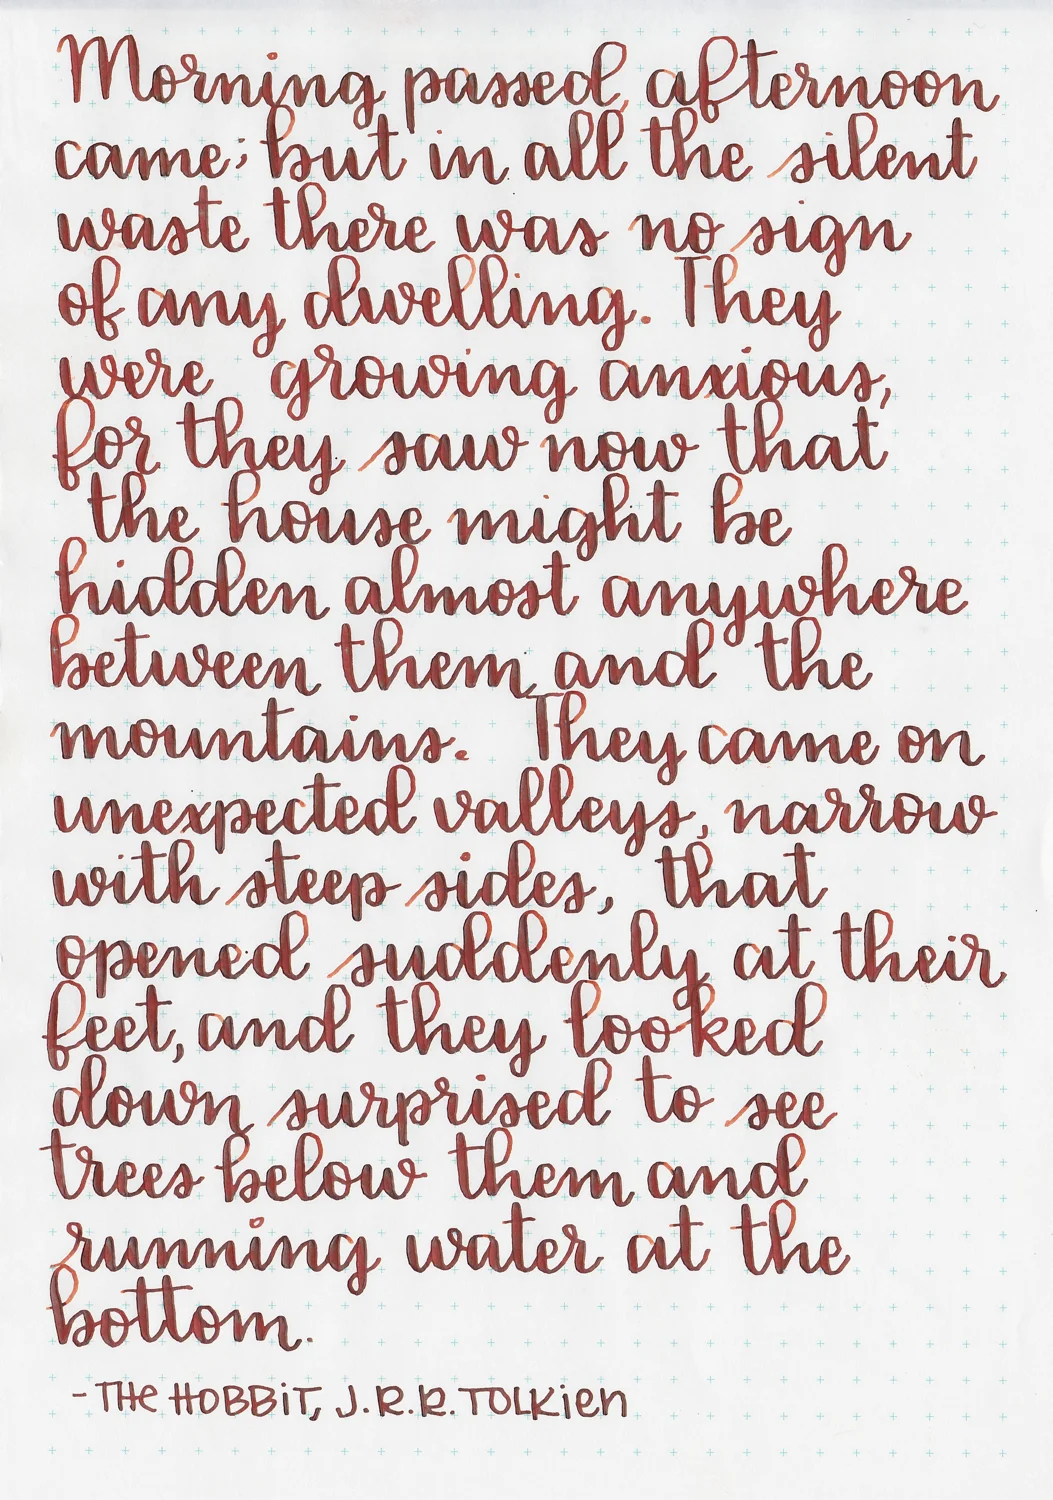 Morning passed, afternoon
came; but in all the silent
waste there was no sign
of any dwelling. They
were growing anxious,
for they saw now that
the house might be
hidden almost anywhere
between them and the
mountains. They came on
unexpected valleys, narrow
with steep sides, that
opened suddenly at their
feet, and they looked
down surprised to see
trees below them and
running water at the
bottom.
- THe HOBBiT, J.R.R. TOLKien